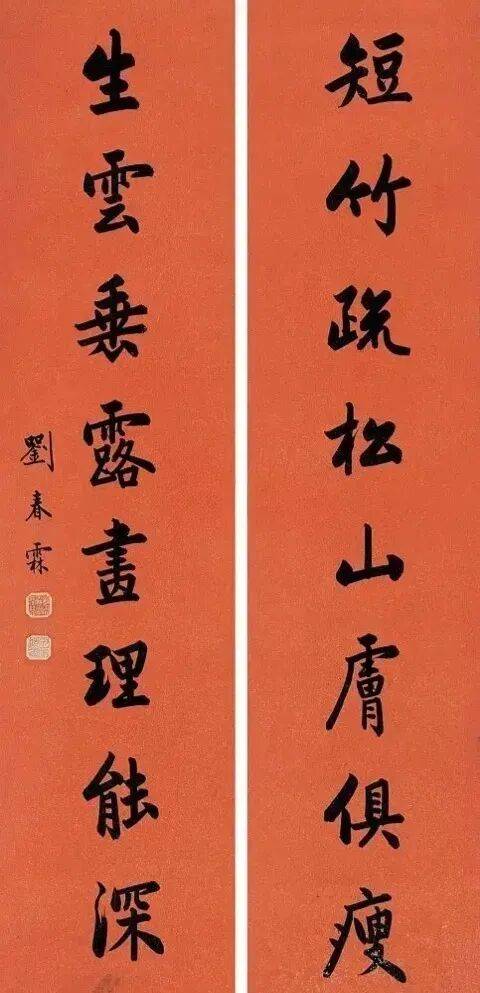 短竹疏松山膚俱瘦
生雲垂露畫理能深
劉春霖